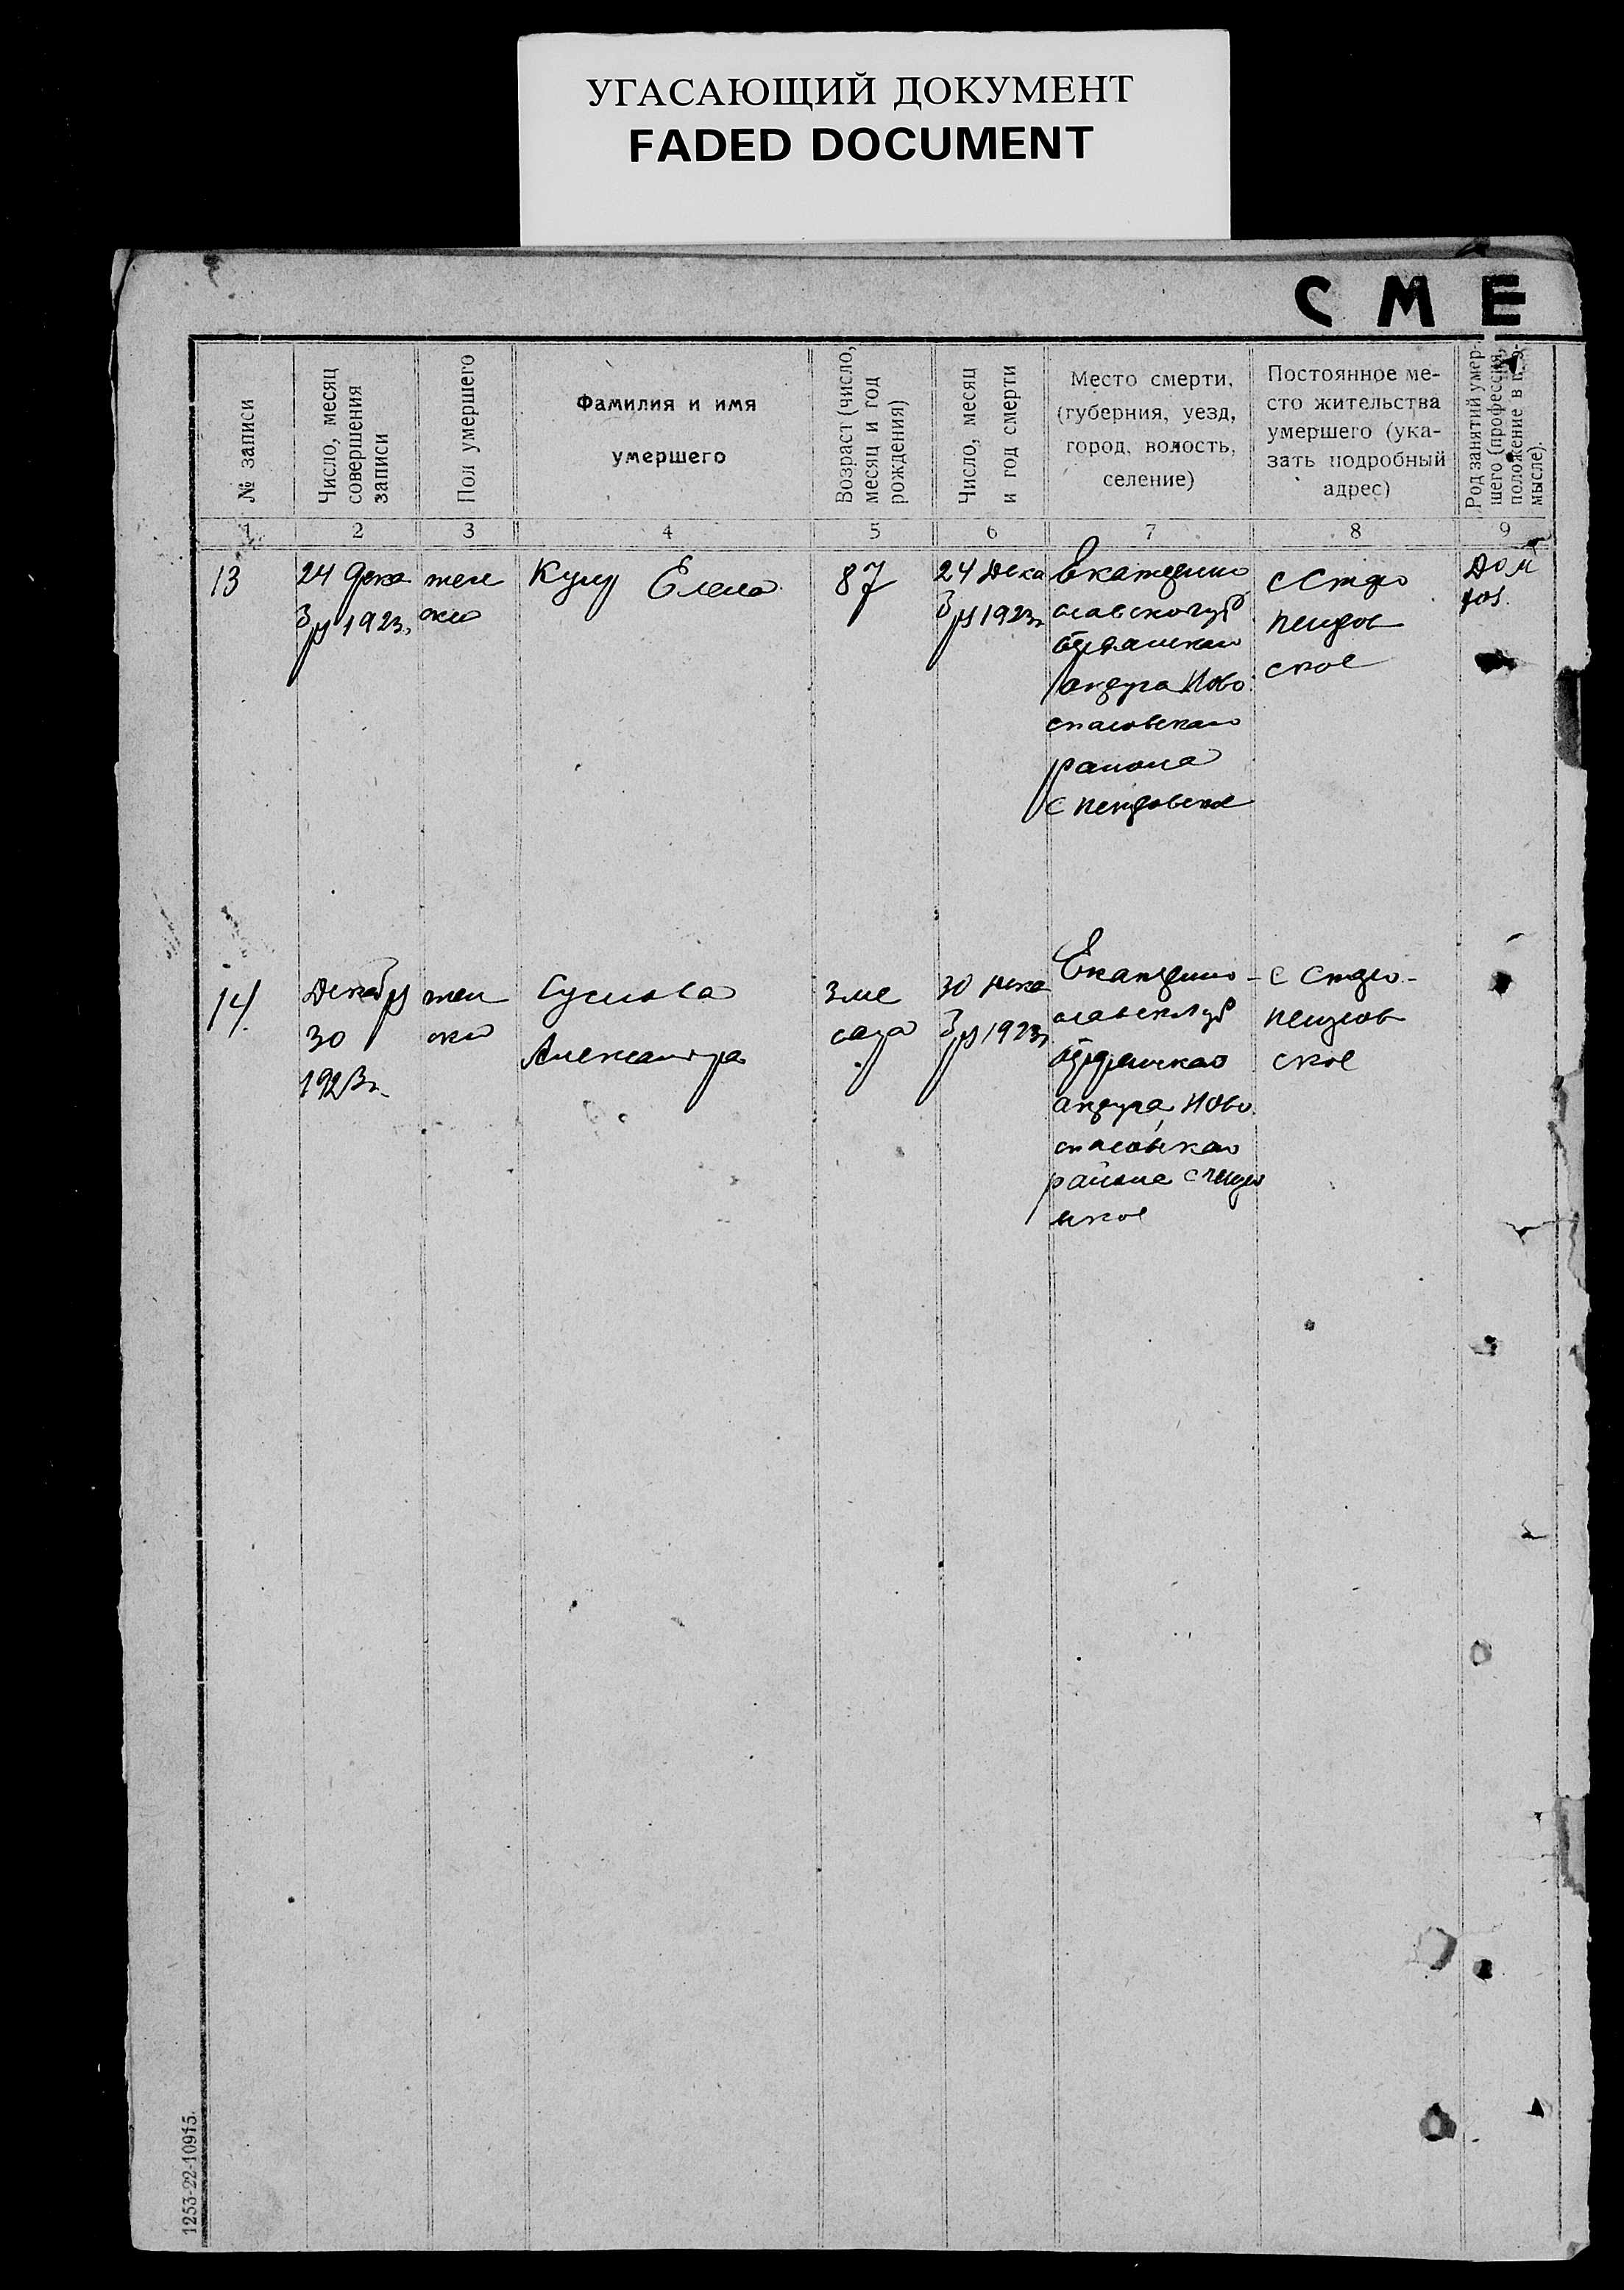 УГАСАЮЩИЙ ДОКУМЕНТ
FADED DOCUMENT
СМЕ
№ записи
Число, месяц
совершения
записи
Пол умершего
Фамилия и имя
умершего
Возраст (число,
месяц и год
рождения)
Число, месяц
и год смерти
Место смерти,
(губерния, уезд,
город, волость,
селение)
Постоянное ме-
сто жительства
умершего (ука-
зать подробный
адрес)
Род занятий умер-
шего (профессия,
положение в про-
мысле).
1 2 3 4 5 6 7 8 9
13
24 Дека
бря 1923г.
жен
ски
Елена
87
24 Дека
бря 1923г
Екатерино
славской губ
округа Ново
спасовского
района
с Петровское
с Старо
петров
ское
Дом
хоз.
14
Декабря
30
1923г.
жен
ски
Суслова
Александра
3 ме
сяца
30 Дека
бря 1923г
Екатерино
округа, Ново
спасовского
района
ское
с Старо-
петров
ское
1253-22-10915.